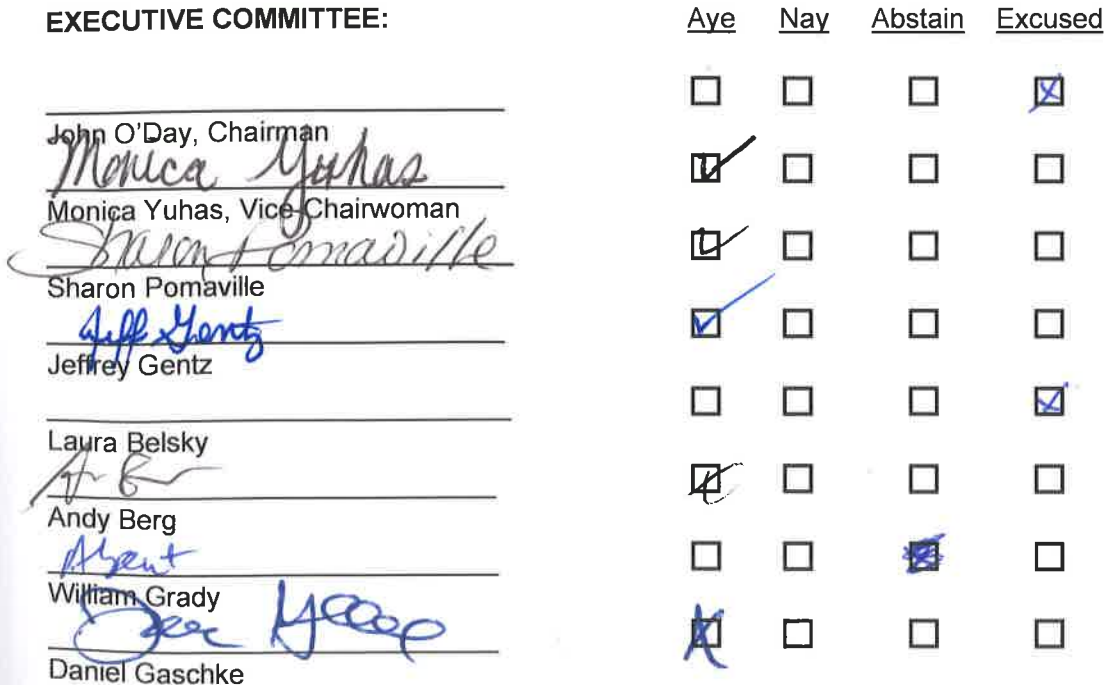 EXECUTIVE COMMITTEE: Aye Nay Abstain Excused
John O'Day, Chairman
Monica Yuhas
Monica Yuhas, Vice-Chairwoman
Sharon Pomaville
Sharon Pomaville
Jeff Gentz
Jeffrey Gentz
Laura Belsky
Andy Berg
Absent
William Grady
Daniel Gaschke